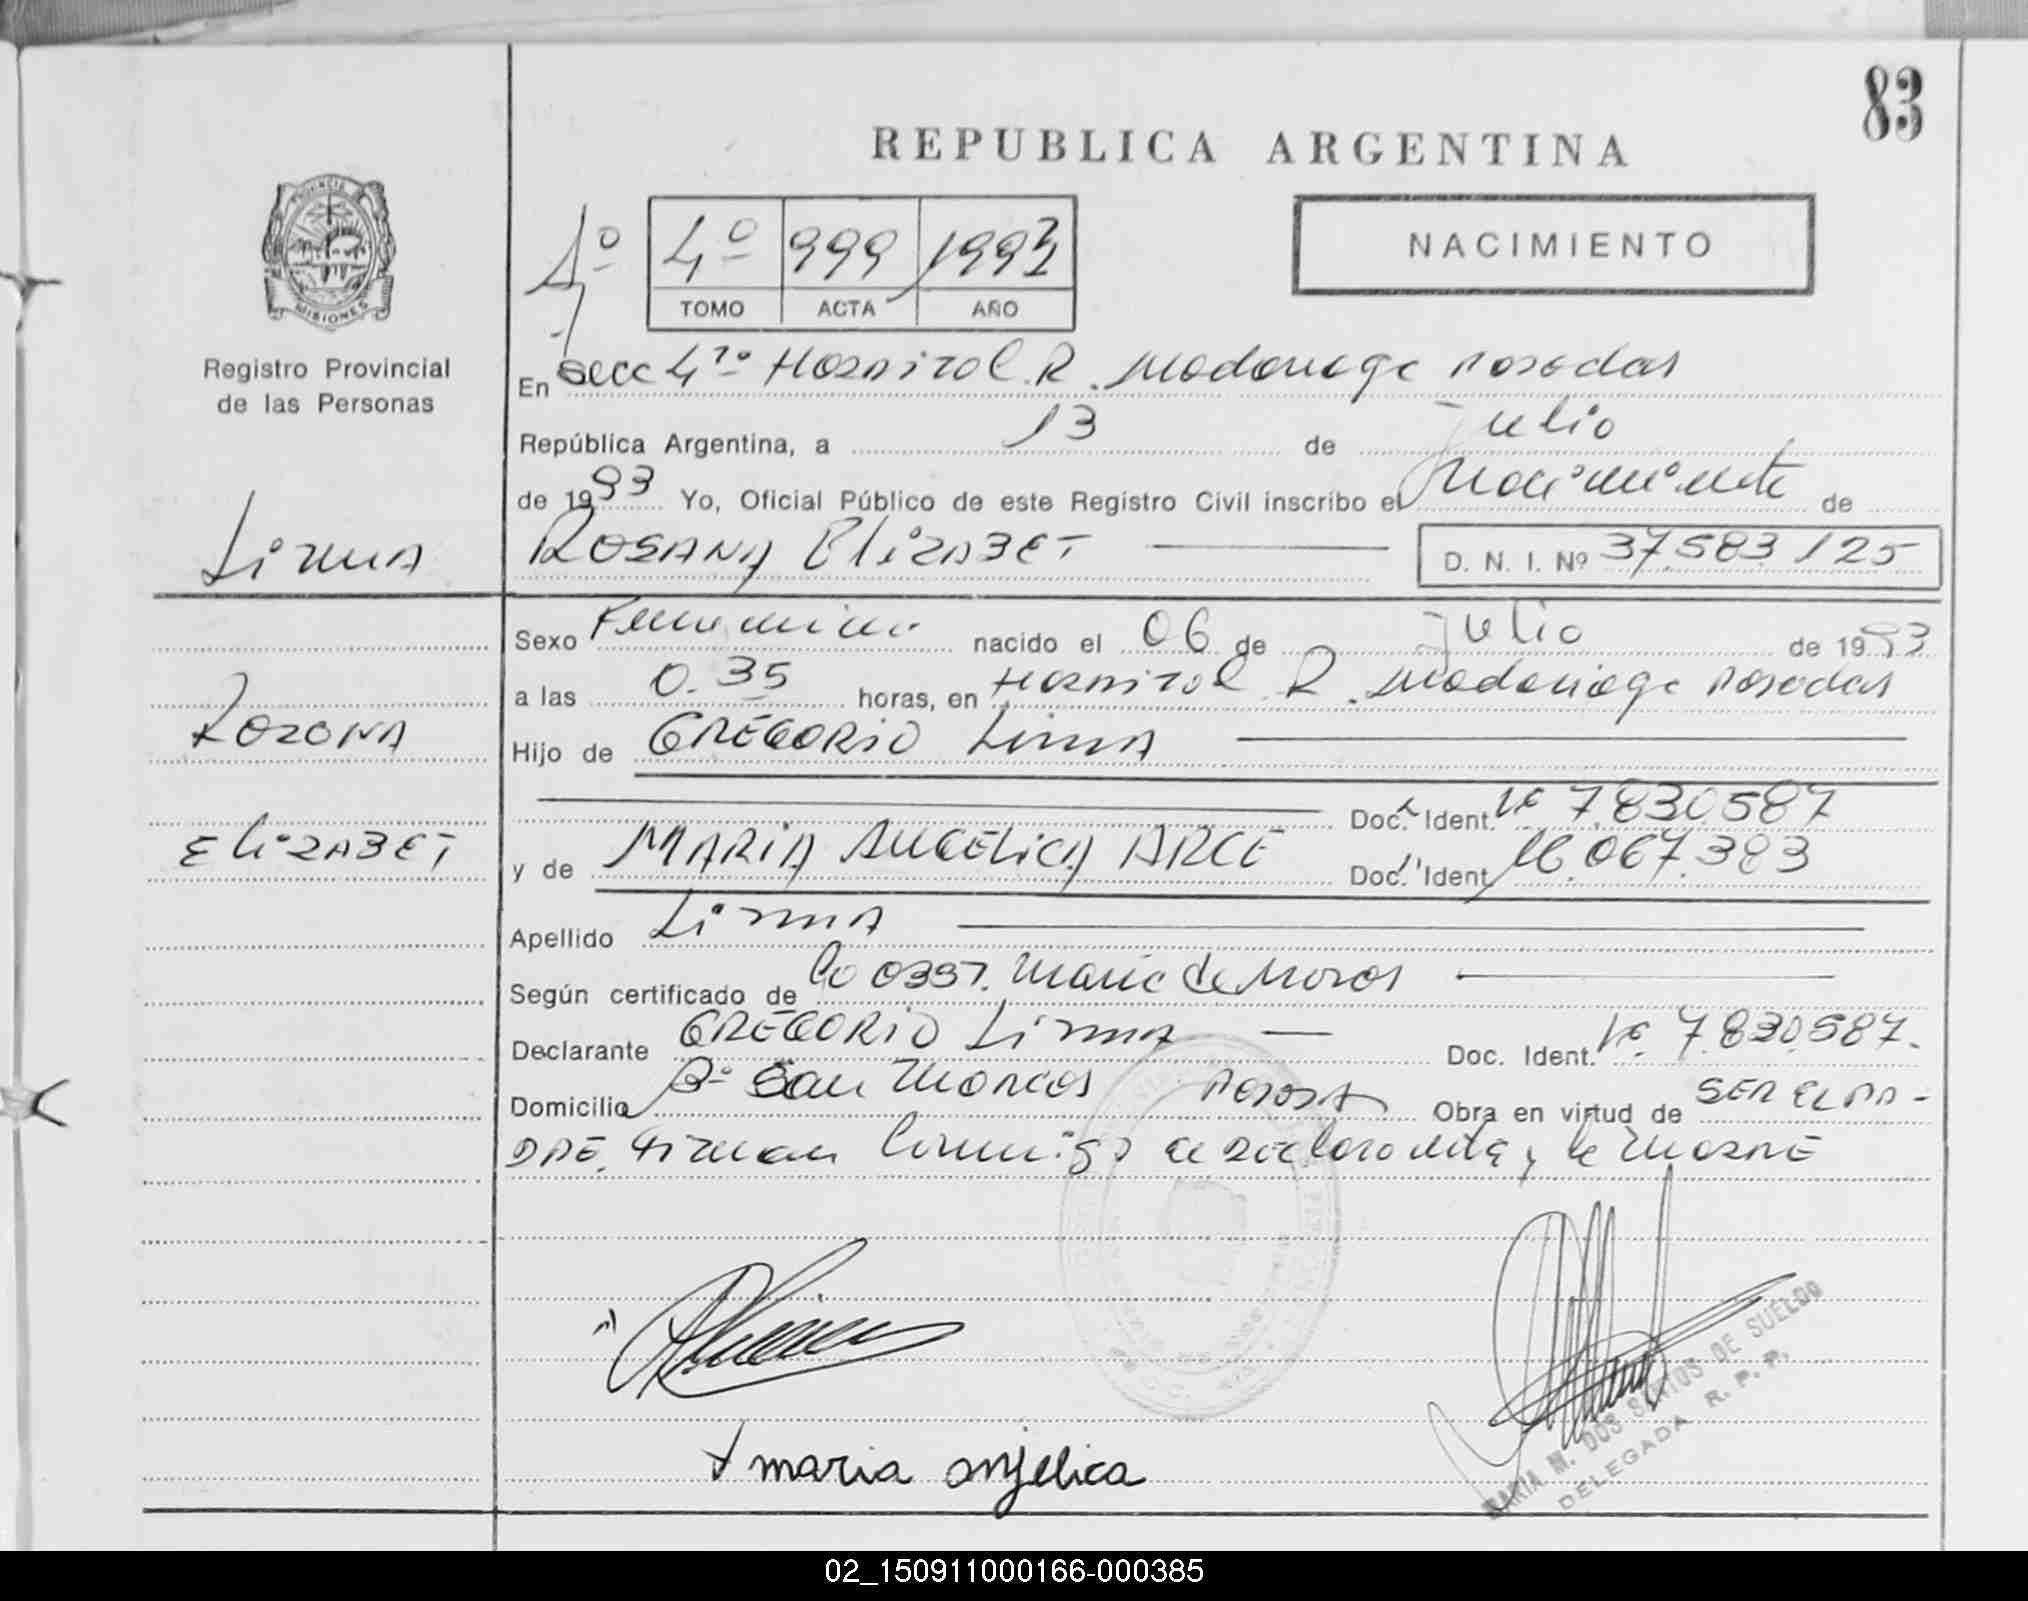 83
REPUBLICA ARGENTINA
PROVINCIA
MISIONES
Registro Provincial
de las Personas
4º 999 1993
TOMO ACTA AÑO
NACIMIENTO
En Secc 4ta Hospital R. Madariaga Posadas
República Argentina, a 13 de Julio
de 1993 Yo, Oficial Público de este Registro Civil inscribo el Nacimiento de
Lima
ROSANA ElizABET D. N. I. Nº 37.583.125
Sexo Femenino nacido el 06 de Julio de 1993
a las 0.35 horas, en Hospital R. Madariaga Posadas
Rosana
Hijo de GREGORIO Lima
Doc. Ident. 7.830.587
ElizABET
y de MARIA ANGELICA ARCE Doc. Ident. 16.067.383
Apellido Lima
Según certificado de
Declarante GREGORIO Lima Doc. Ident. 7.830.587.
Domicilio Bº San Marcos Obra en virtud de SER EL PA-
DRE. Firman conmigo el declarante y la MADRE
maria anjelica
MARIA M. DOS SANTOS DE SUELDO
DELEGADA R. P. P.
02_150911000166-000385